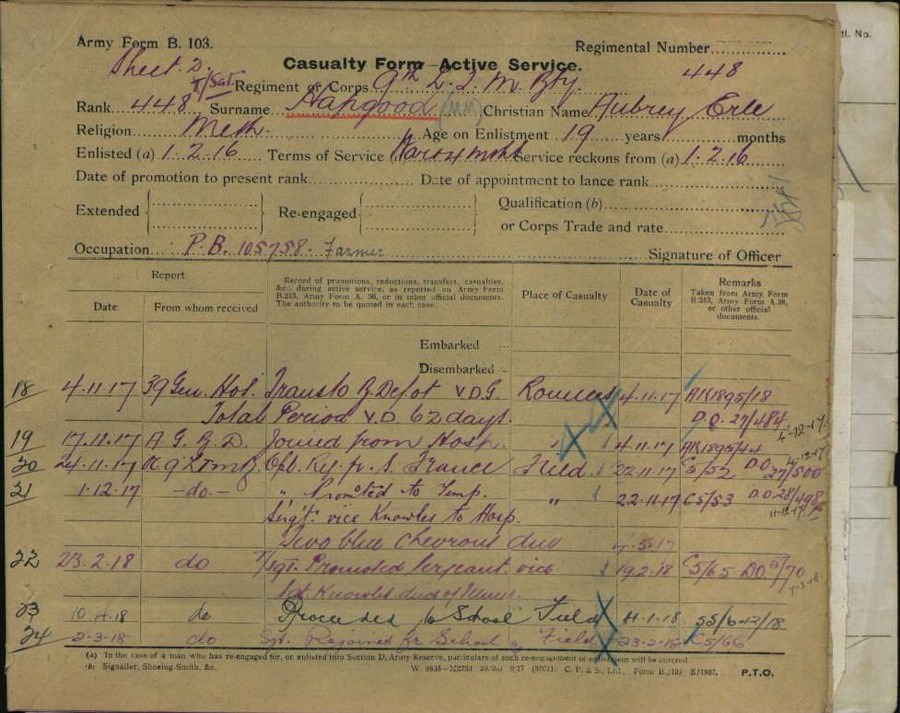 tl. No.
Army Form B. 103. Regimental Number
Sheet 2. Casualty Form—Active Service. 448
T/Sgt Regiment or Corps 9th L.T.M. Bty.
Rank 448 Surname Hapgood (MM) Christian Name Aubrey Erle
Religion Meth. Age on Enlistment 19 years months
Enlisted (a) 1.2.16 Terms of Service Service reckons from (a) 1.2.16
Date of promotion to present rank Date of appointment to lance rank
Extended Re-engaged Qualification (b)
or Corps Trade and rate
Occupation P.B. 105758. Farmer Signature of Officer
Report
Date From whom received
Record of promotions, reductions, transfers, casualties, &c., during active service, as reported on Army Form B.213, Army Form A. 36, or in other official documents. The authority to be quoted in each case.
Place of Casualty
Date of Casualty
Remarks
Taken from Army Form B.213, Army Form A.36, or other official documents.
Embarked
Disembarked
18 4.11.17 39 Gen. Hos. Trans to B. Depot V.D.G. Rouelles 4.11.17 AK1895/18
Total Period V.D. 62 days. D.O. 27/484 4-12-17
19 17.11.17 A G. B. D. Joined from Hosp. " 4.11.17 AK1895/44
20 24.11.17 France Field 22.11.17 C5/52 D.O. 27/500
21 1.12.17 —do.— " Promoted to Temp. " 22.11.17 C5/53 D.O. 28/498
Sergt. vice Knowles to Hosp. 11.12.17
Two blue chevrons due 4.5.17
22 23.2.18 do T/Sgt. Promoted Sergeant vice 19.2.18 C5/65 DO 5/70
Sgt. Knowles died of Illness.
23 do Proceeded to School Field
24 2-3-18 do Sgt. Rejoined fr School Field 23-2-18 C5/66
(a) In the case of a man who has re-engaged for, or enlisted into Section D, Army Reserve, particulars of such re-engagement or enlistment will be entered.
(b) Signaller, Shoeing-Smith, &c. P.T.O.